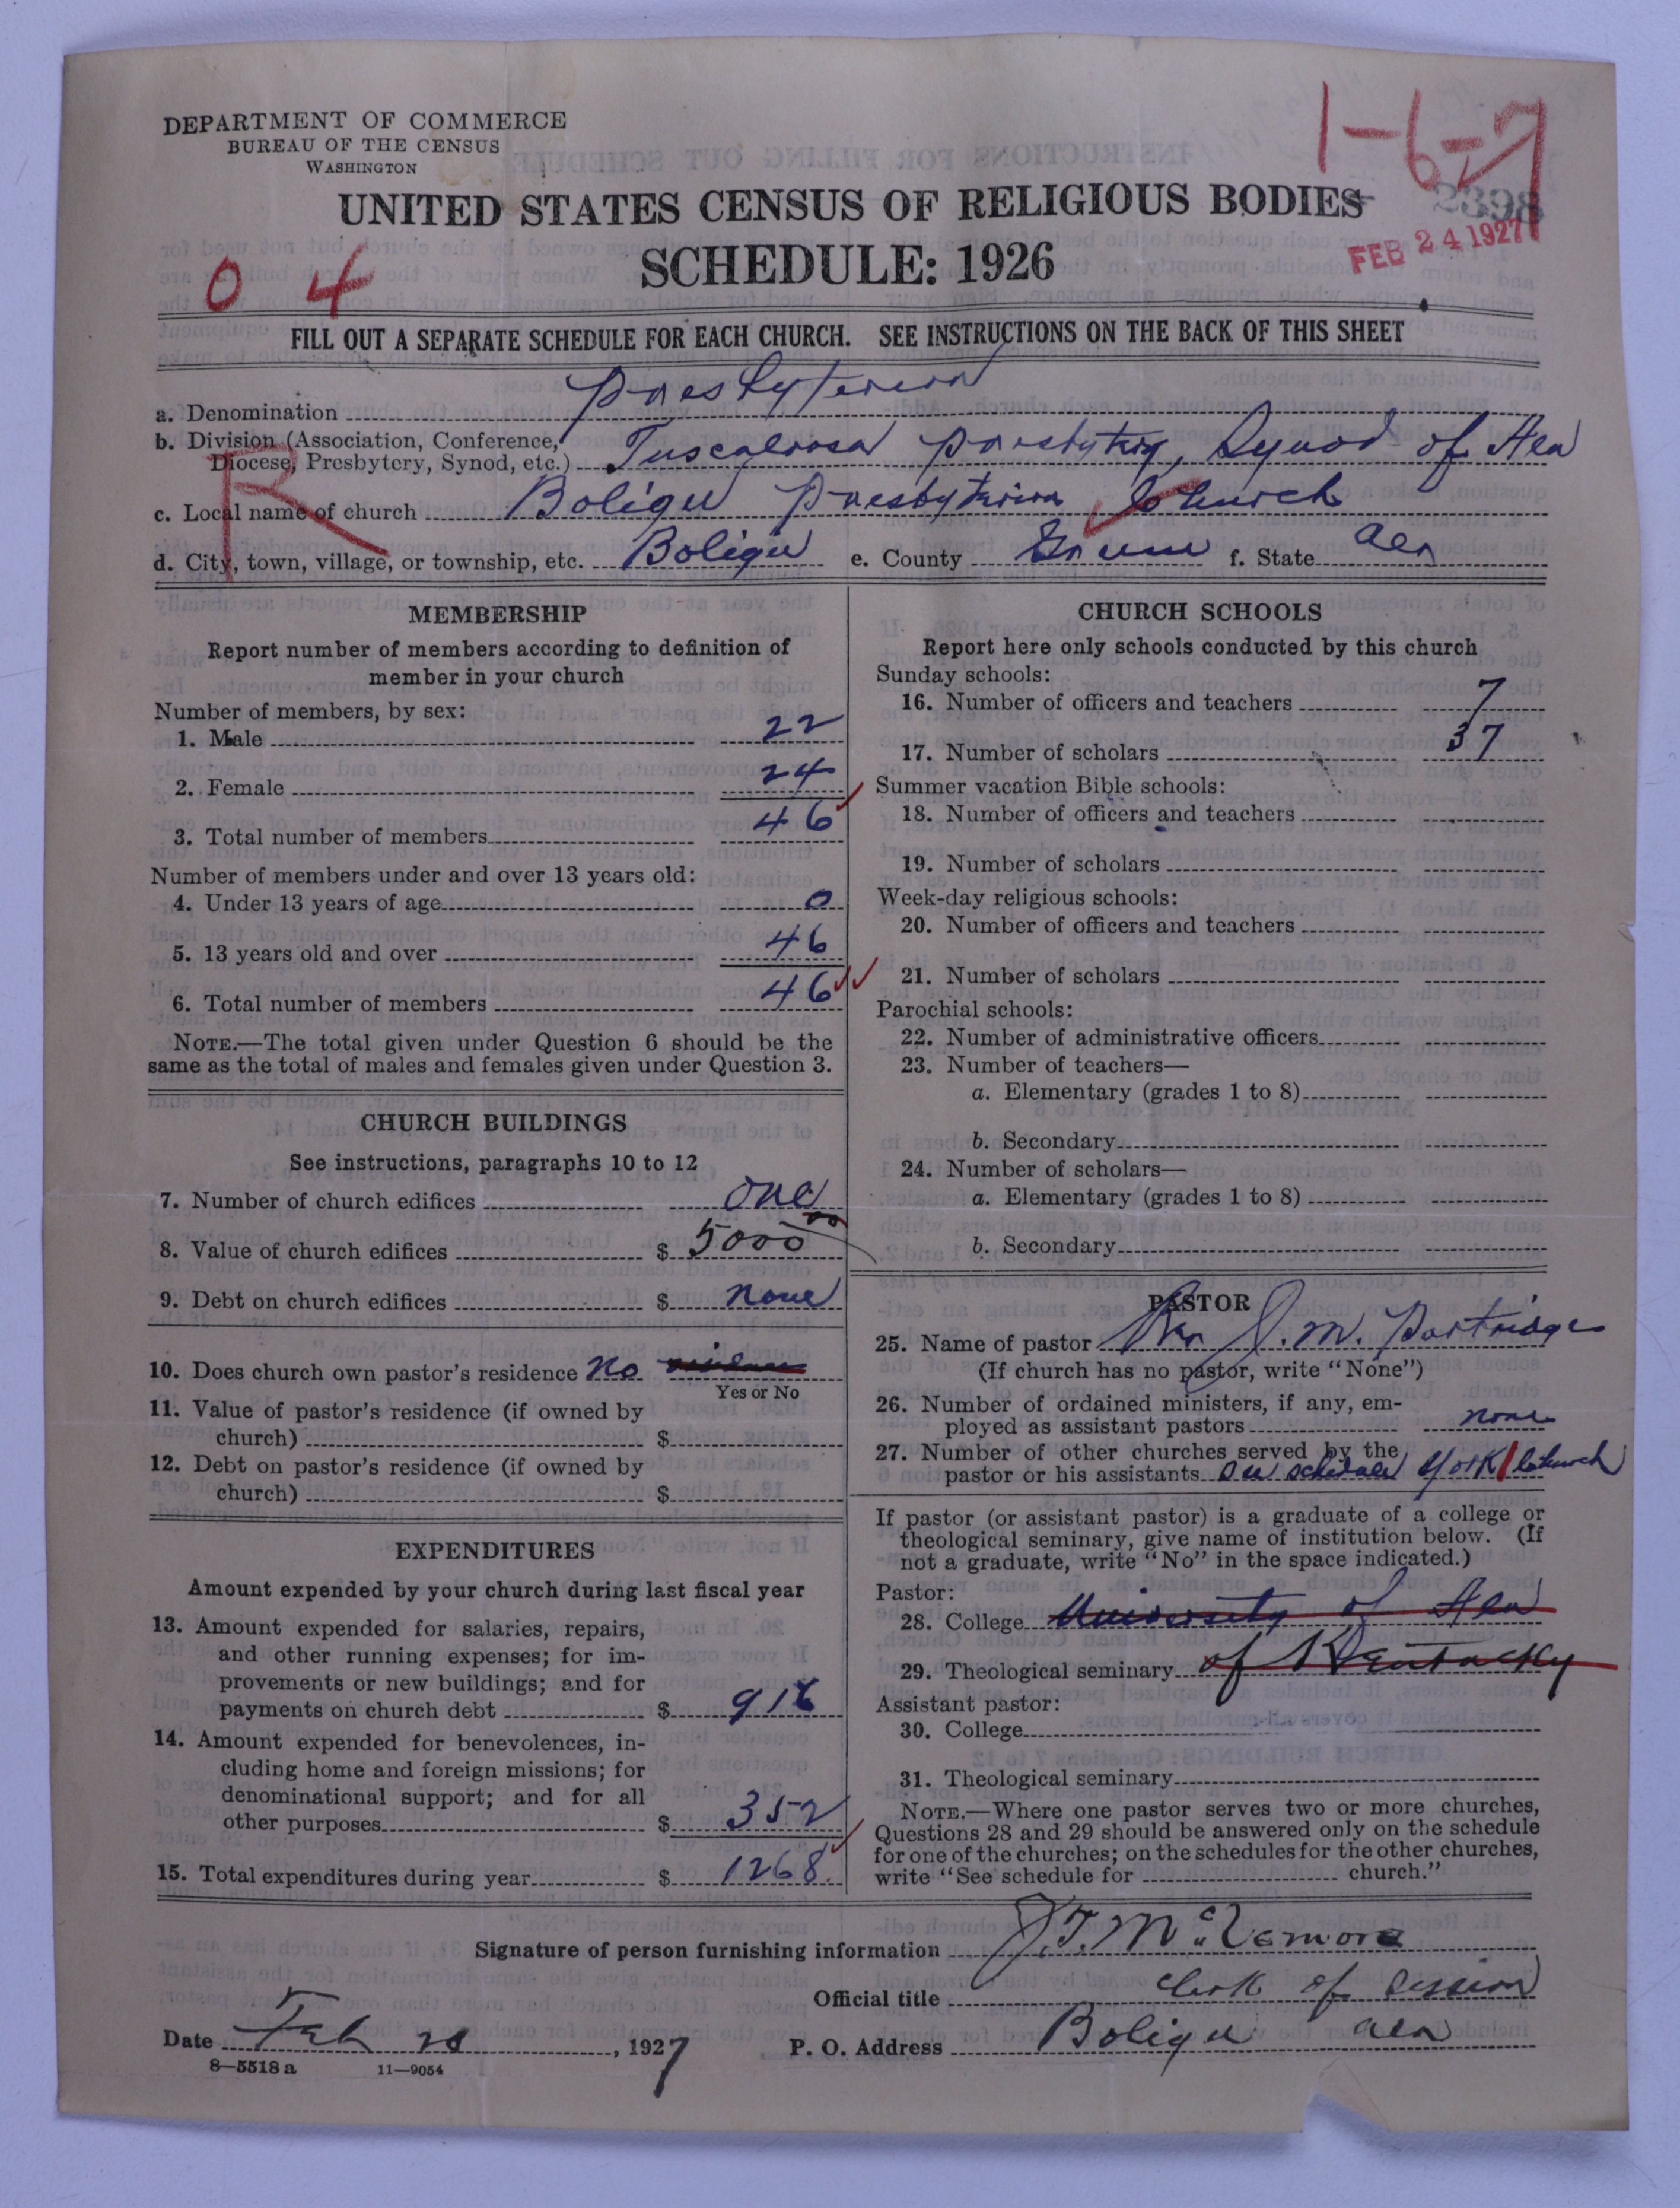 DEPARTMENT OF COMMERCE
BUREAU OF THE CENSUS
WASHINGTON
1-6-27
2398
UNITED STATES CENSUS OF RELIGIOUS BODIES
SCHEDULE: 1926
FEB 24 1927
0 4
FILL OUT A SEPARATE SCHEDULE FOR EACH CHURCH. SEE INSTRUCTIONS ON THE BACK OF THIS SHEET
a. Denomination Presbyterian
b. Division (Association, Conference, Diocese, Presbytery, Synod, etc.) Tuscaloosa Presbytry, Synod of Ala
R
c. Local name of church Boligu Presbyterian Church
d. City, town, village, or township, etc. Boligu e. County Greene f. State Ala
MEMBERSHIP
Report number of members according to definition of
member in your church
Number of members, by sex:
1. Male 22
2. Female 24
3. Total number of members 46
Number of members under and over 13 years old:
4. Under 13 years of age 0
5. 13 years old and over 46
6. Total number of members 46
NOTE.—The total given under Question 6 should be the
same as the total of males and females given under Question 3.
CHURCH BUILDINGS
See instructions, paragraphs 10 to 12
7. Number of church edifices one
8. Value of church edifices $ 5000 00
9. Debt on church edifices $ none
10. Does church own pastor's residence No
Yes or No
11. Value of pastor's residence (if owned by
church) $
12. Debt on pastor's residence (if owned by
church) $
EXPENDITURES
Amount expended by your church during last fiscal year
13. Amount expended for salaries, repairs,
and other running expenses; for im-
provements or new buildings; and for
payments on church debt $ 916
14. Amount expended for benevolences, in-
cluding home and foreign missions; for
denominational support; and for all
other purposes $ 352
15. Total expenditures during year $ 1268
CHURCH SCHOOLS
Report here only schools conducted by this church
Sunday schools:
16. Number of officers and teachers 7
17. Number of scholars 37
Summer vacation Bible schools:
18. Number of officers and teachers
19. Number of scholars
Week-day religious schools:
20. Number of officers and teachers
21. Number of scholars
Parochial schools:
22. Number of administrative officers
23. Number of teachers—
a. Elementary (grades 1 to 8)
b. Secondary
24. Number of scholars—
a. Elementary (grades 1 to 8)
b. Secondary
PASTOR
25. Name of pastor Rev J. M. Partridge
(If church has no pastor, write "None")
26. Number of ordained ministers, if any, em-
ployed as assistant pastors none
27. Number of other churches served by the
pastor or his assistants See schedule York Church
If pastor (or assistant pastor) is a graduate of a college or
theological seminary, give name of institution below. (If
not a graduate, write "No" in the space indicated.)
Pastor:
28. College University of Ala
29. Theological seminary of Kentucky
Assistant pastor:
30. College
31. Theological seminary
NOTE.—Where one pastor serves two or more churches,
Questions 28 and 29 should be answered only on the schedule
for one of the churches; on the schedules for the other churches,
write "See schedule for church."
Signature of person furnishing information J. F. McVemore
Official title clerk of session
Date Feb 20, 1927 P. O. Address Boligu Ala
8—5518 a 11—9054